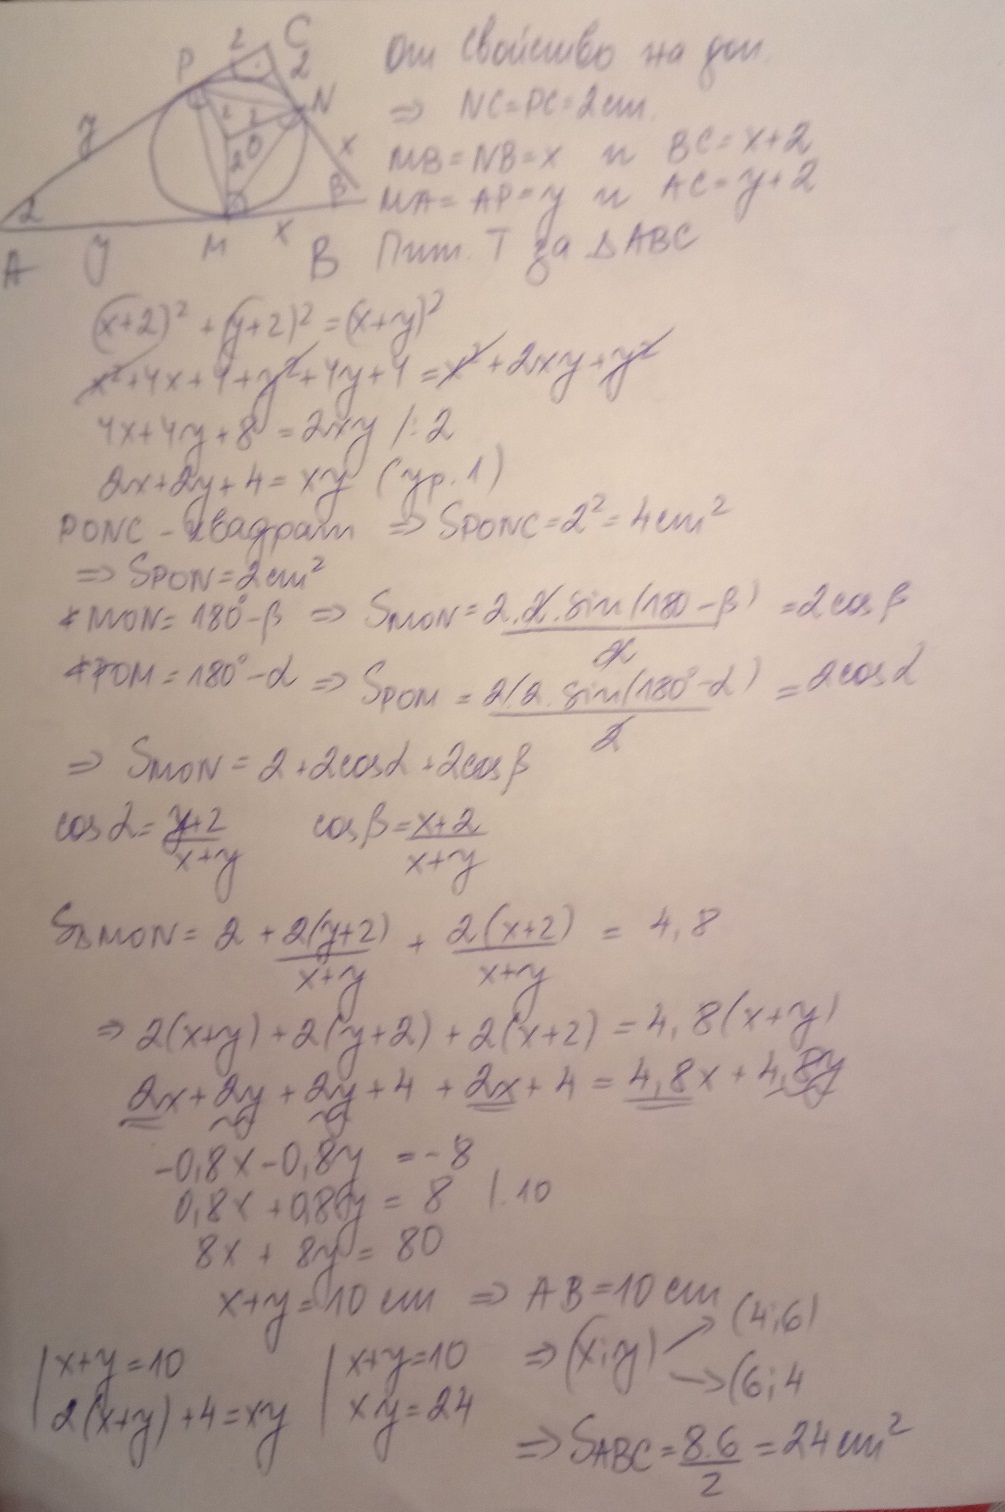 2 C
P 2 N
y 2 2 O x
2 2 β
A y M x B
От свойство на доп.
⇒ NC=PC=2cm.
MB=NB=x и BC=x+2
MA=AP=y и AC=y+2
Пит. Т за ΔABC
(x+2)²+(y+2)²=(x+y)²
x²+4x+4+y²+4y+4=x²+2xy+y²
4x+4y+8=2xy /:2
2x+2y+4=xy (ур.1)
PONC - квадрат ⇒ SPONC=2²=4cm²
⇒ SPON=2cm²
∢MON=180°-β ⇒ SMON=2.2.sin(180-β)/2=2cosβ
∢POM=180°-α ⇒ SPOM=2.2.sin(180°-α)/2=2cosα
⇒ SMON=2+2cosα+2cosβ
cosα=y+2/x+y cosβ=x+2/x+y
SΔMON=2+2(y+2)/x+y+2(x+2)/x+y=4,8
⇒ 2(x+y)+2(y+2)+2(x+2)=4,8(x+y)
2x+2y+2y+4+2x+4=4,8x+4,8y
-0,8x-0,8y=-8
0,8x+0,8y=8 /.10
8x+8y=80
x+y=10cm ⇒ AB=10cm
|x+y=10 |x+y=10 ⇒(x;y) → (4;6)
|2(x+y)+4=xy |xy=24 → (6;4
⇒ SABC=8.6/2=24cm²